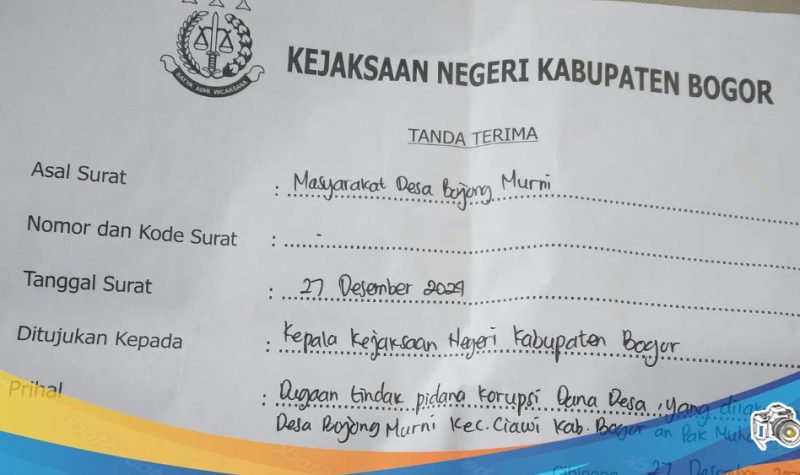 SATYA ADHI WICAKSANA
KEJAKSAAN NEGERI KABUPATEN BOGOR
TANDA TERIMA
Asal Surat : Masyarakat Desa Bojong Murni
Nomor dan Kode Surat : -
Tanggal Surat : 27 Desember 2024
Ditujukan Kepada : Kepala Kejaksaan Negeri Kabupaten Bogor
Prihal : Dugaan tindak pidana Korupsi Dana Desa, yang
Desa Bojong Murni Kec. Ciawi Kab. Bogor an Pak
27 Desember